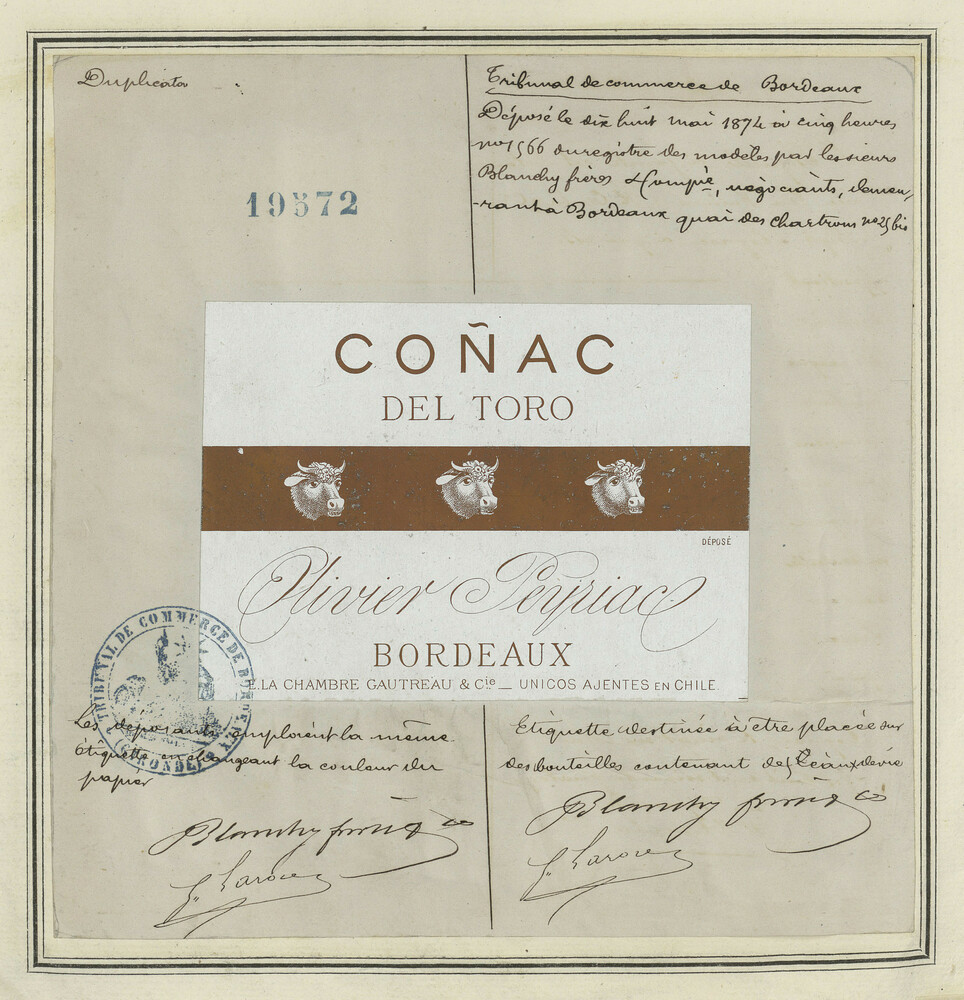 Duplicata
Tribunal de commerce de Bordeaux
Déposé le dix huit mai 1874 à cinq heures
no 1566 du registre des modèles par les sieurs
Blanchy frères & Compie, négociants, demeu,
-rant à Bordeaux quai des Chartrons no 25 bis
19572
COÑAC
DEL TORO
DÉPOSÉ
Olivier Peyriac
BORDEAUX
E. LA CHAMBRE GAUTREAU & Cie _ UNICOS AJENTES EN CHILE
TRIBUNAL DE COMMERCE DE BORDEAUX
(GIRONDE)
Les déposants emploient la même
étiquette en changeant la couleur du
papier
Etiquette destinée à être placée sur
des bouteilles contenant des eaux de vie
Blanchy frères & Co
Blanchy frères & Co